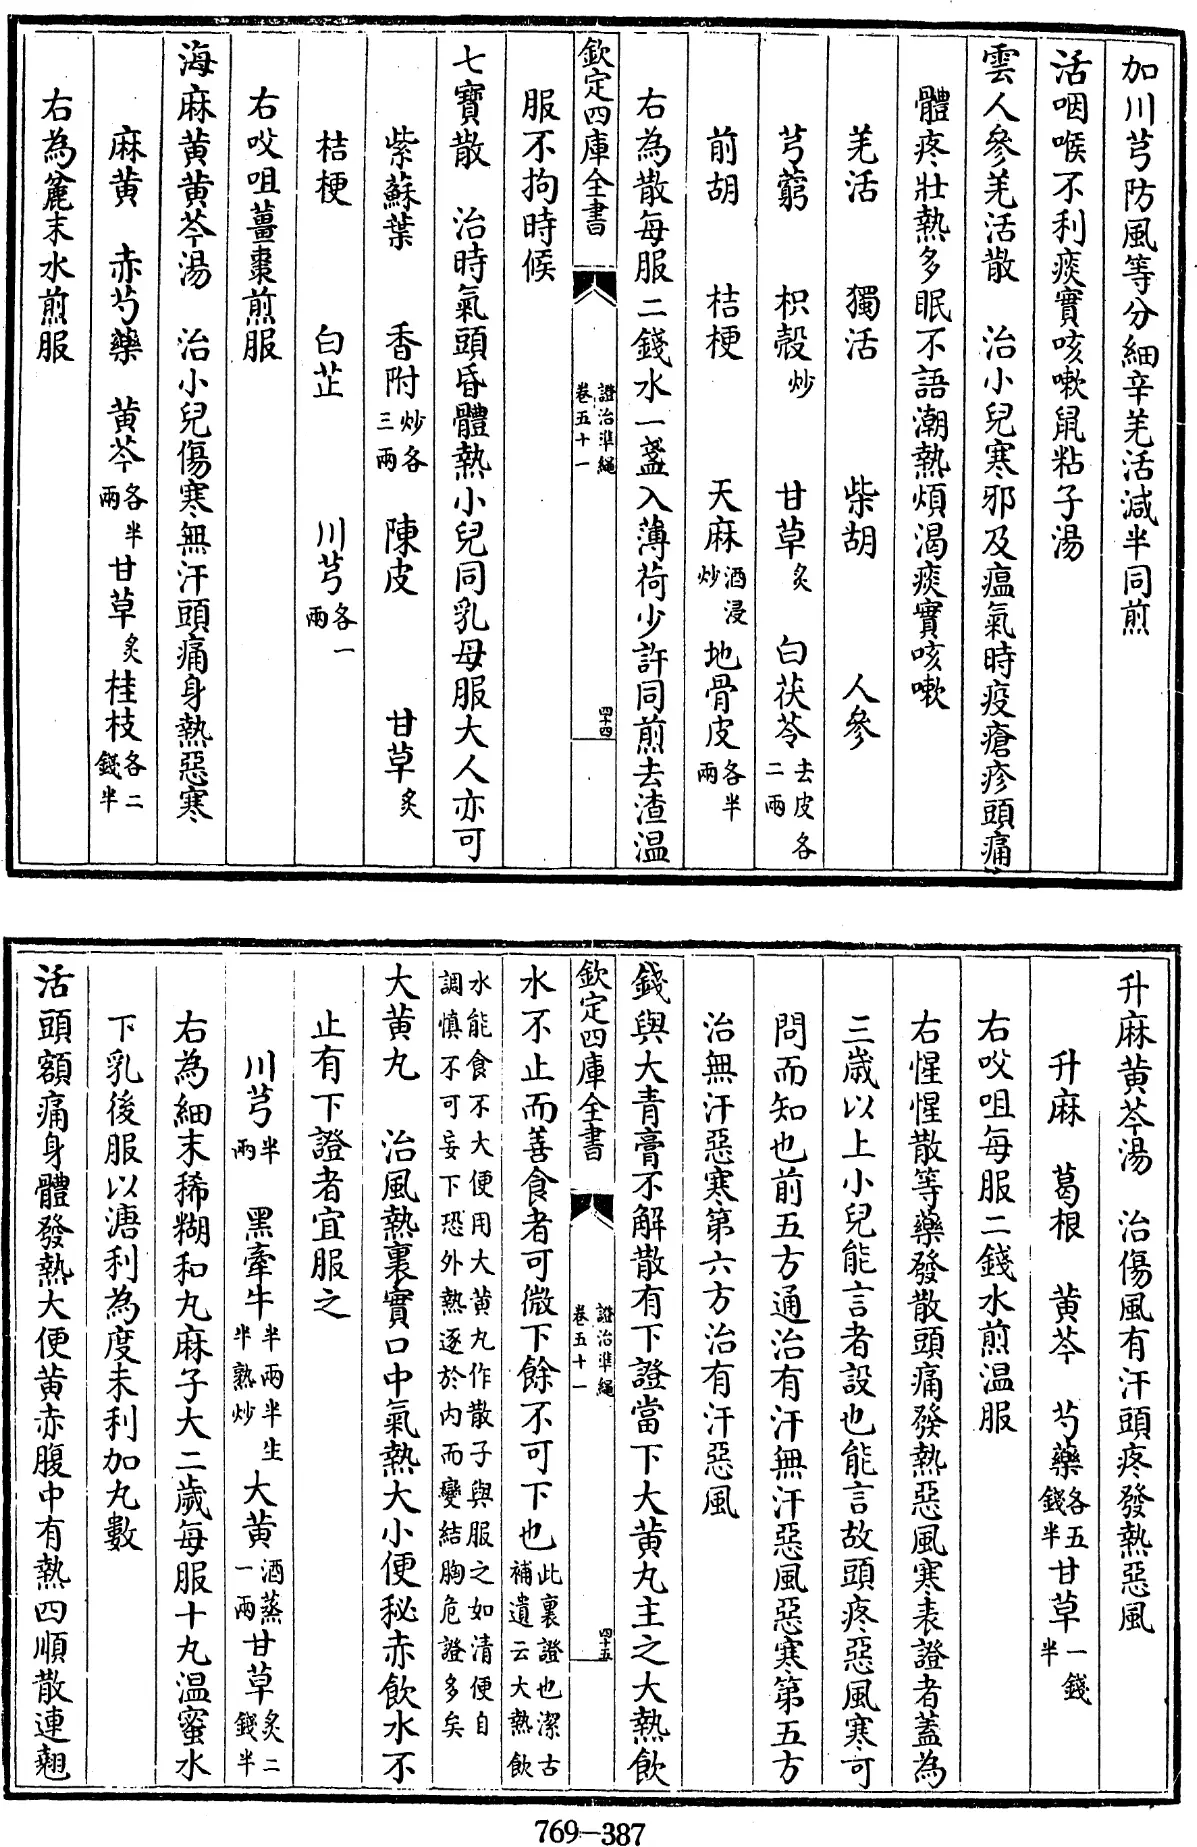 加川芎防風等分細辛羌活減半同煎
活咽喉不利痰實咳嗽鼠粘子湯
雲人參羌活散　治小兒寒邪及瘟氣時疫瘡疹頭痛
體疼壯熱多眠不語潮熱煩渴痰實咳嗽
羌活　獨活　柴胡　人參
芎藭　枳殼炒　甘草炙　白茯苓去皮各二兩
前胡　桔梗　天麻酒浸炒　地骨皮各半兩
右為散每服二錢水一盞入薄荷少許同煎去渣温
欽定四庫全書　證治準繩卷五十一　四十四
服不拘時候
七寶散　治時氣頭昏體熱小兒同乳母服大人亦可
紫蘇葉　香附炒各三兩　陳皮　甘草炙
桔梗　白芷　川芎各一兩
右㕮咀薑棗煎服
海麻黄黄芩湯　治小兒傷寒無汗頭痛身熱惡寒
麻黄　赤芍藥　黄芩各半兩　甘草炙　桂枝各二錢半
右為麄末水煎服
升麻黄芩湯　治傷風有汗頭疼發熱惡風
升麻　葛根　黄芩　芍藥各五錢半　甘草一錢半
右㕮咀每服二錢水煎温服
右惺惺散等藥發散頭痛發熱惡風寒表證者葢為
三歲以上小兒能言者設也能言故頭疼惡風寒可
問而知也前五方通治有汗無汗惡風惡寒第五方
治無汗惡寒第六方治有汗惡風
錢與大青膏不解散有下證當下大黄丸主之大熱飲
欽定四庫全書　證治準繩卷五十一　四十五
水不止而善食者可微下餘不可下也此裏證也潔古補遺云大熱飲
水能食不大便用大黄丸作散子與服之如清便自調慎不可妄下恐外熱逐於内而變結胸危證多矣
大黄丸　治風熱裏實口中氣熱大小便秘赤飲水不
止有下證者宜服之
川芎半兩　黑牽牛半兩半生半熟炒　大黄酒蒸一兩　甘草炙二錢半
右為細末稀糊和丸麻子大二歲每服十丸温蜜水
下乳後服以溏利為度未利加丸數
活頭額痛身體發熱大便黄赤腹中有熱四順散連翹
769—387